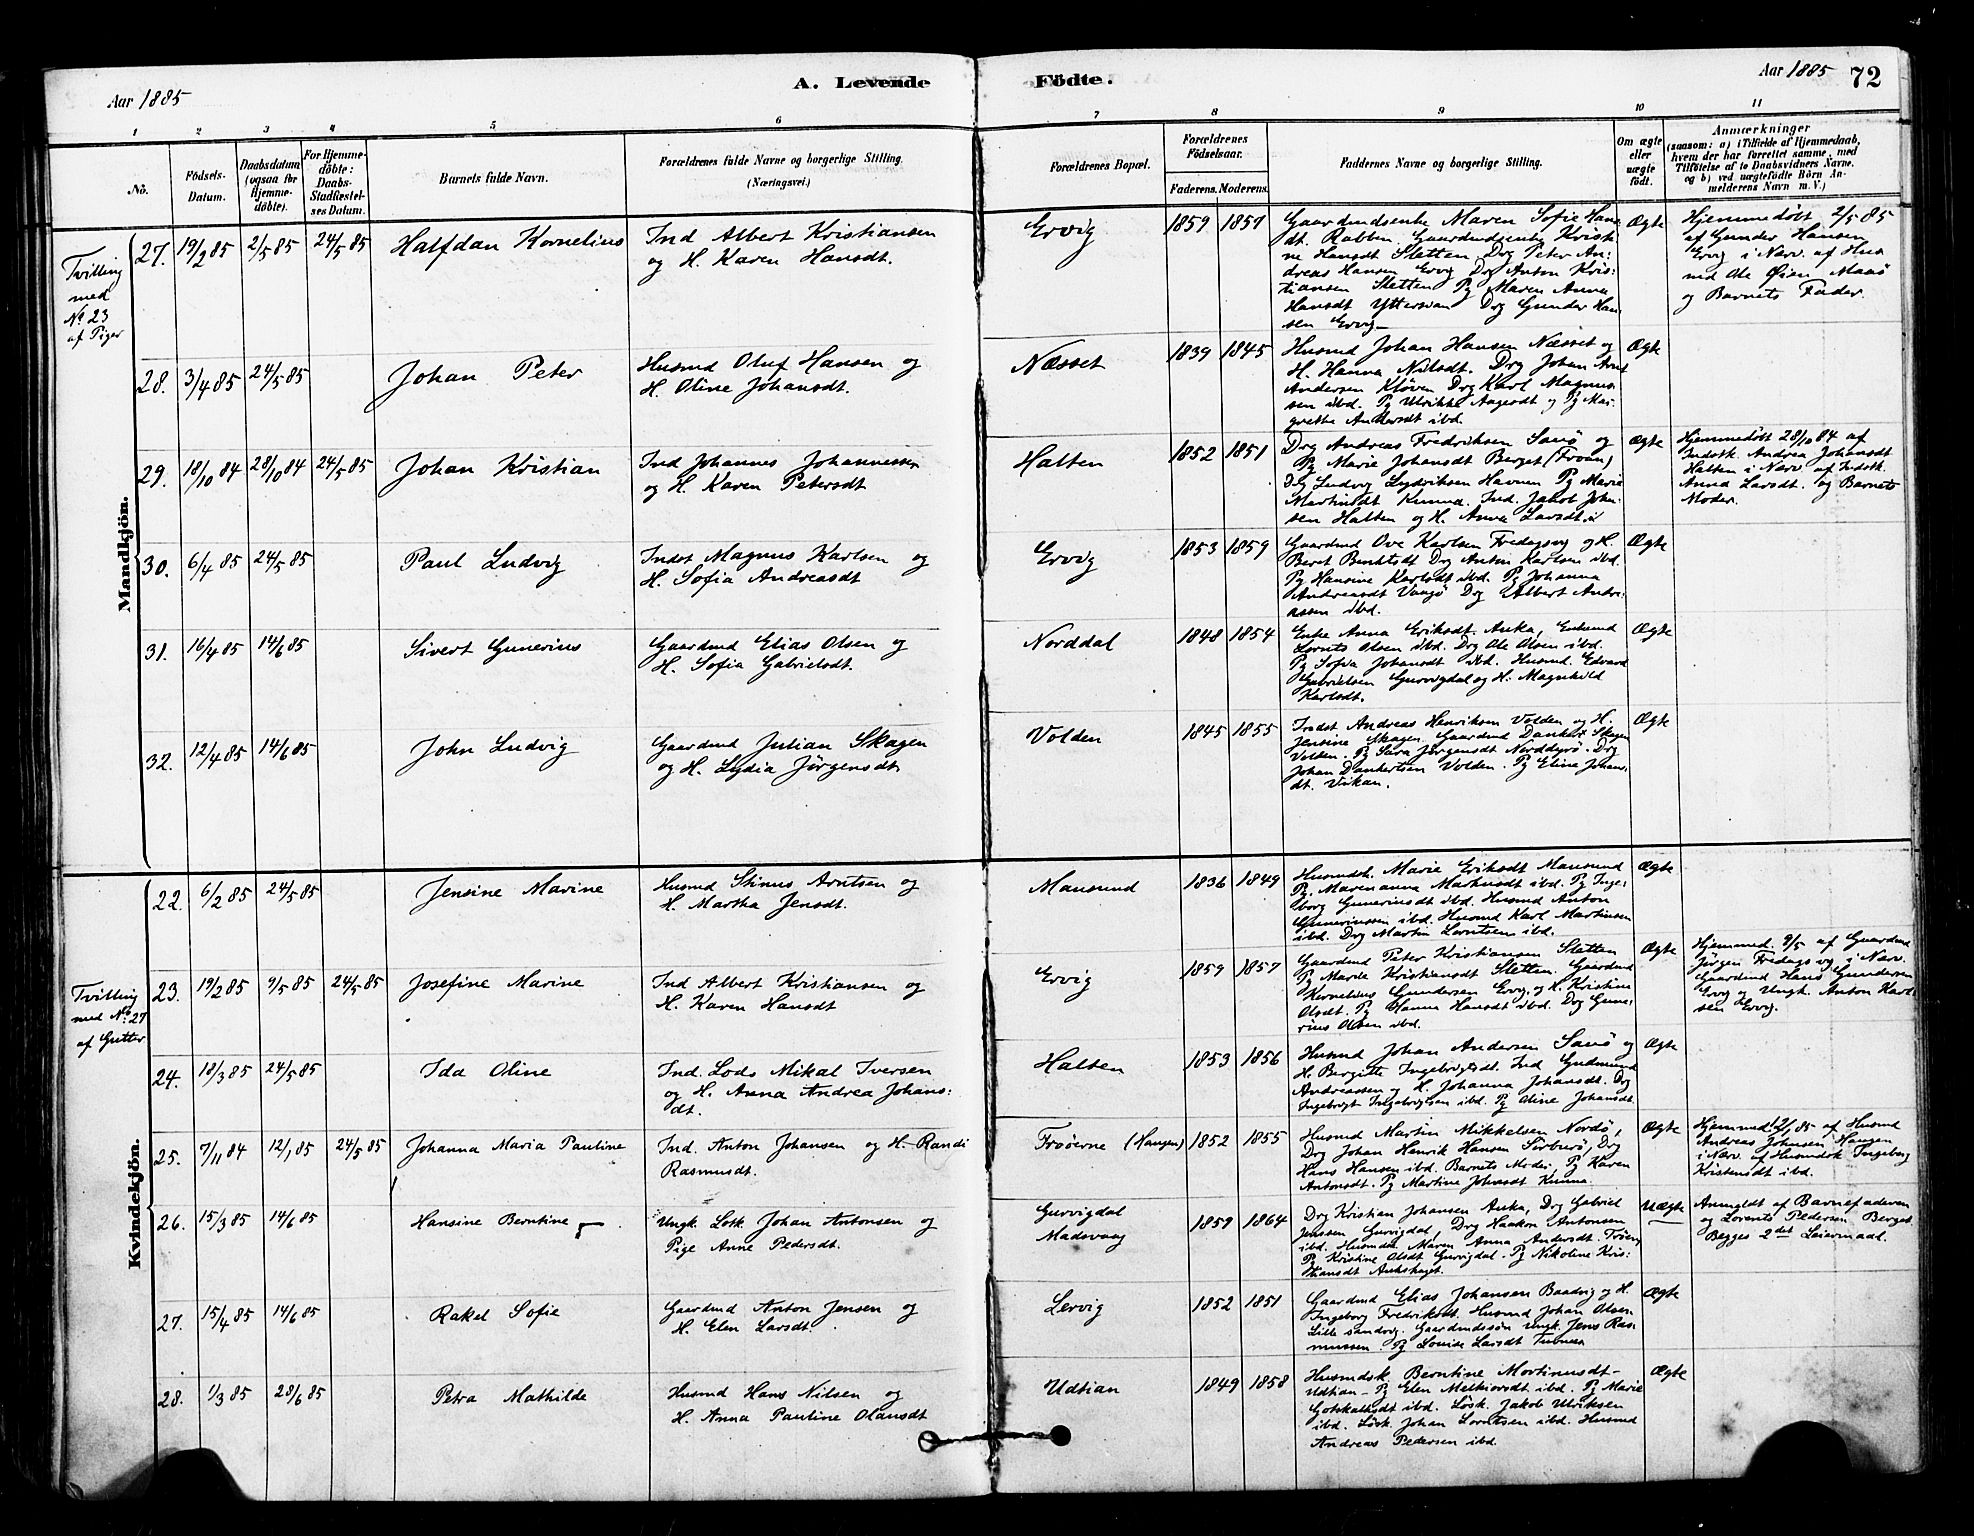 Aar 1885
A. Levende
Födte.
Aar 1885 72
1 2 3 4 5 6 7 8 9 10 11
No.
Födsels-
Datum.
Daabsdatum
(ogsaa for
Hjemme-
døbte).
For Hjemme-
döbte:
Daabs-
Stadfæstel-
ses Datum.
Barnets fulde Navn.
Forældrenes fulde Navne og borgerlige Stilling.
(Næringsvei.)
Forældrenes Bopæl.
Forældrenes
Födselsaar.
Faderens. Moderens.
Faddernes Navne og borgerlige Stilling.
Om ægte
eller
uægte
födt.
Anmærkninger
(saasom: a) i Tilfælde af Hjemmedaab,
hvem der har forrettet samme, med
Tilföielse af to Daabsvidners Navne.
og b) ved uægtefödte Börn An-
melderens Navn m. V.)
Mandkjön.
Tvilling
med
No 23
af Piger
27. 19/2 85 2/5 85 24/5 85
Halfdan Kornelius
Ind Albert Kristiansen
og H. Karen Hansdt.
Ervig
1859 1857
Gaardmdsenke Maren Sofie Han
dt. Rabben Gaardmdsenke Kristi
ne Hansdt Sletten Drg Peter An:
dreas Hansen Ervig Drg Anton Kris:
tiansen Sletten Pg Maren Anna
Hansdt Yttersian Drg Gunder Han
sen Ervig
Ægte
Hjemmedøbt 2/5 85
af Gunder Hansen
Ervig i Nærv. af Hus
md Ole Øien Maasö
og Barnets Fader.
28. 3/4 85 24/5 85
Johan Peter
Husmd Oluf Hansen og
H. Oline Johansdt.
Næsset
1839 1845
Husmd Johan Hansen Næsset og
H. Hanna Nilsdt. Drg Johan Arnt
Andersen Kløven Drg Karl Magnus
sen ibd. Pg Ulrikke Aagesdt og Pg Mar
grethe Andersdt ibd.
Ægte
29. 18/10 84 28/10 84 24/5 85
Johan Kristian
Ind Johannes Johannessen
og H. Karen Petersdt
Halten
1852 1851
Drg Andreas Fredriksen Sauö og
Pg Marie Johansdt Berget (Froan)
Drg Ludvig Lydriksen Havnen Pg Marie
Martinsdt Kunna. Ind. Jakob John
sen Halten og H. Anna Larsdt
Ægte
Hjemmedøbt 28/10 84 af
Indstk. Andrea Johansdt
Halten i Nærv. af Indstk.
Anna Larsdt. og Barnets
Moder.
30. 6/4 85 24/5 85
Paul Ludvig
Indst Magnus Karlsen og
H. Sofia Andreasdt
Ervig
1853 1859
Gaardmd Ove Karlsen Fredagsvg og H.
Beret Berntsdt Drg Anton Karlsen ibd.
Pg Hansine Karlsdt ibd. Pg Johanna
Andreasdt Vaagø Drg Albert Andre
assen ibd.
Ægte
31. 16/4 85 14/6 85
Sivert Gunerius
Gaardmd Elias Olsen og
H. Sofia Gabrielsdt.
Norddal
1848 1854
Enke Anna Eriksdt. Anka, Enkemd
Lornts Olsen ibd. Drg Ole Olsen ibd.
Pg Sofia Johansdt ibd. Husmd. Edvard
Gabrielsen Gurvigdal og H. Magnhild
Karlsdt.
Ægte
32. 12/4 85 14/6 85
John Ludvig
Gaardmd Julian Skagen
og H. Lydia Jørgensdt.
Volden
1845 1855
Indst Andreas Henriksen Volden og H.
Jensine Skagen. Gaardmd Dankert Skagen
Volden. Pg Sara Jørgensdt Norddyrø. Drg
Johan Dankertsen Volden. Pg Eline Johan
dt. Vikan.
Ægte
Kvindekjön.
22. 6/2 85 24/5 85
Jensine Marine
Husmd Stinus Arntsen og
H. Martha Jensdt.
Mausund
1836 1849
Husmdsk. Marie Eriksdt Mausund
Pg. Marenanna Martinsdt ibd. Pg Inge:
borg Gunerinsdt ibd. Husmd Anton
Gunerinssen ibd. Husmd Karl Martinsen
ibd. Drg Martin Lorntsen ibd.
Ægte
Tvilling
med No 27
af Gutter
23. 19/2 85 9/5 85 24/5 85
Josefine Marine
Ind Albert Kristiansen og
H. Karen Hansdt
Ervig
1859 1857
Gaardmd Peter Kristiansen Sletten
Pg Marte Kristiansdt Sletten. Gaardmd
Kornelius Gundersen Ervg. og H. Kristine
Olsdt. Pg Hanna Hansdt ibd. Drg Gune
rius Olsen ibd.
Ægte
Hjemmed. 9/5 af Gaardmd
Jörgen Fredagsvg i Nærv.
Gaardmd Hans Gundersen
Ervg og Ungk. Anton Karl
sen Ervg.
24. 18/3 85 24/5 85
Ida Oline
Ind. Lods Mikal Iversen
og H. Anna Andrea Johans:
dt.
Halten
1853 1856
Husmd Johan Andersen Sauö og
H. Bergitte Ingebrigtsdt. Ind Gudmund
Andreassen og H. Johanna Johansdt. Drg
Ingebrigt Ingebrigtsen ibd. Pg Oline Johansdt.
Ægte
25. 7/11 84 12/1 85 24/5 85
Johanna Maria Pauline
Ind. Anton Johansen og H. Randi
Rasmusdt.
Froøerne (Haugen)
1852 1855
Husmd Martin Mikkelsen Nordö,
Drg Johan Henrik Hansen Sörburö, Drg
Hans Hansen ibd. Barnets Moder, Pg Karen
Antonsdt. Pg Martine Johnsdt Kunna.
Ægte
Hjemmed 12/1 85 af Husmd
Andreas Johnsen Haugen
i Nærv. af Husmdsk Ingeborg
Kristensdt ibd.
26. 15/3 85 14/6 85
Hansine Berntine
Ungk. Losk Johan Antonsen og
Pige Anne Pedersdt.
Gurvigdal
Madsvaag
1859 1864
Drg Kristian Johansen Anka, Drg Gabriel
Jenssen Gurvigdal, Drg Haakon Antonsen
ibd. Husmdsk Maren Anna Andersdt.
Pg Kristine Olsdt Gurvigdal. Pg Nikoline Kris:
tiansdt
Uægte
Anmeldt af Barnefaderen
og Lorents Pedersen Berget
Begges 2det Leiermaal.
27. 15/4 85 14/6 85
Rakel Sofie
Gaardmd Anton Jensen og
H. Elen Larsdt.
Lervig
1852 1851
Gaardmd Elias Johansen Baadvig og H.
Ingeborg Fredriksdt. Husmd Johan Olsen
Lille sandvg. Gaardmdssön Ungk. Jens Ras
mussen. Pg Louise Larsdt
Ægte
28. 1/3 85 28/6 85
Petra Mathilde
Husmd Hans Nilsen og
H. Anna Pauline Olausdt
Udtian
1849 1858
Husmdsk Berntine Mortinusdt
Udtian Pg Elen Melkiorsdt ibd. Pg Marie
Gotskalksdt ibd. Løsk. Jakob Ulriksen
ibd. Løsk. Johan Lorntsen ibd. Husmd
Andreas Pedersen ibd.
Ægte